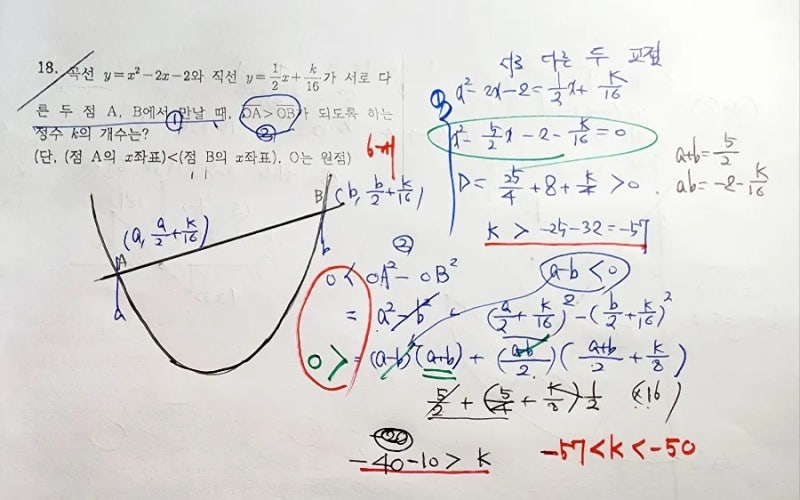 18. 곡선 y=x²-2x-2와 직선 y=1/2x+k/16가 서로 다
른 두 점 A, B에서 만날 때, OA>OB가 되도록 하는
①
②
정수 k의 개수는?
(단, (점 A의 x좌표)<(점 B의 x좌표), O는 원점)
6개
서로 다른 두 교점
x²-2x-2=1/2x+k/16
x²-5/2x-2-k/16=0
D=25/4+8+k/4>0
k>-25-32=-57
a+b=5/2
ab=-2-k/16
B(b, b/2+k/16)
(a, a/2+k/16)
A
a
b
②
0<OA²-OB²
a-b<0
=a²-b² (a/2+k/16)²-(b/2+k/16)²
0>=(a-b)(a+b)+(a-b/2)(a+b/2+k/8)
5/2+(5/4+k/8)1/2 (×16)
-40-10>k
-57<k<-50